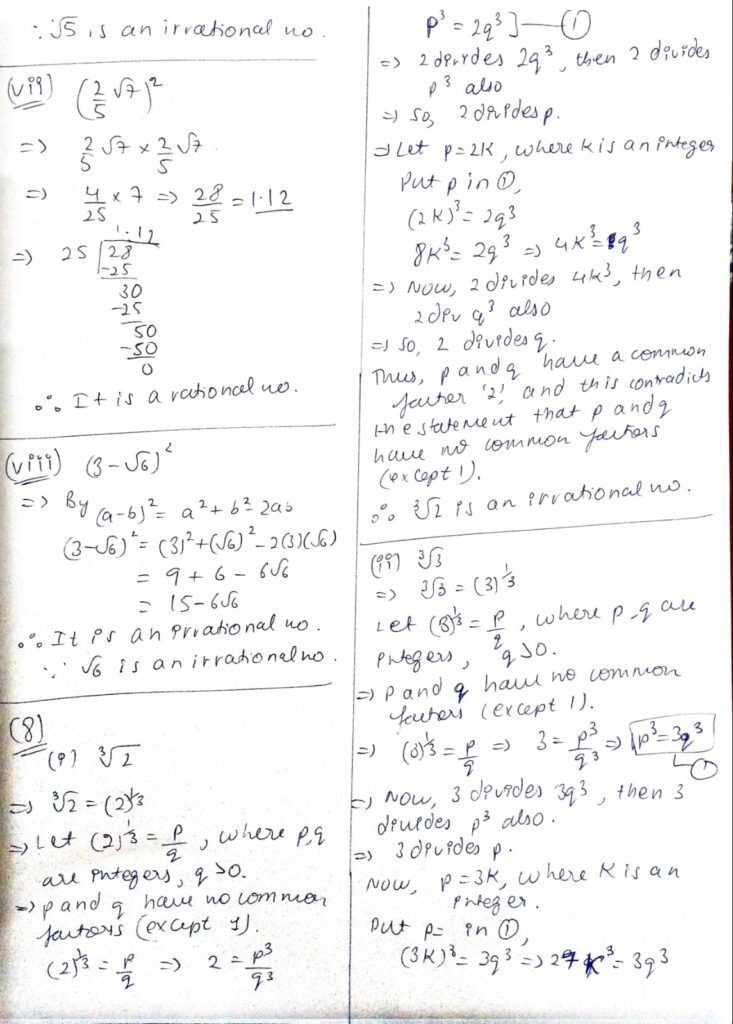 ∵ √5 is an irrational no.
(vii) (2/5 √7)²
=> 2/5 √7 × 2/5 √7.
=> 4/25 × 7 => 28/25 = 1.12
1.12
=> 25 ⟌28
-25
30
-25
50
-50
0
∴ It is a rational no.
(viii) (3-√6)²
=> By (a-b)² = a² + b² - 2ab
(3-√6)² = (3)² + (√6)² - 2(3)(√6)
= 9 + 6 - 6√6
= 15 - 6√6
∴ It is an irrational no.
∵ √6 is an irrational no.
(8)
(i) ∛2
=> ∛2 = (2)^1/3
=> Let (2)^1/3 = p/q, where p,q
are integers, q>0.
=> p and q have no common
factors (except 1).
(2)^1/3 = p/q => 2 = p³/q³
p³ = 2q³] — ①
=> 2 divides 2q³, then 2 divides
p³ also
=> so, 2 divides p.
=> Let p=2K, where k is an integer
Put p in ①,
(2K)³ = 2q³
8K³ = 2q³ => 4K³ = q³
=> Now, 2 divides 4K³, then
2 div q³ also
=> so, 2 divides q.
Thus, p and q have a common
factor '2', and this contradicts
the statement that p and q
have no common factors
(except 1).
∴ ∛2 is an irrational no.
(ii) ∛3
=> ∛3 = (3)^1/3
Let (3)^1/3 = p/q, where p,q are
integers, q>0.
=> p and q have no common
factors (except 1).
=> (3)^1/3 = p/q => 3 = p³/q³ => p³=3q³
①
=> Now, 3 divides 3q³, then 3
divides p³ also.
=> 3 divides p.
Now, p=3K, where K is an
integer.
Put p= in ①,
(3K)³ = 3q³ => 27K³ = 3q³